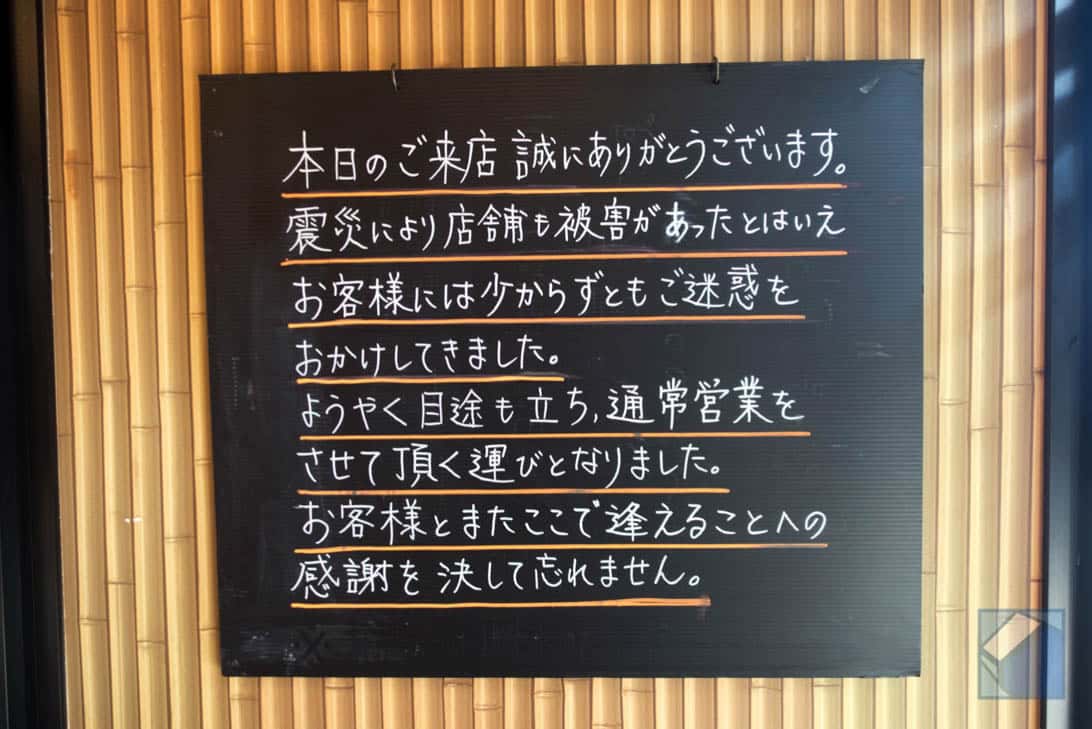 本日のご来店 誠にありがとうございます。
震災により店舗も被害があったとはいえ
お客様には少からずともご迷惑を
おかけしてきました。
ようやく目途も立ち,通常営業を
させて頂く運びとなりました。
お客様とまたここで逢えることへの
感謝を決して忘れません。